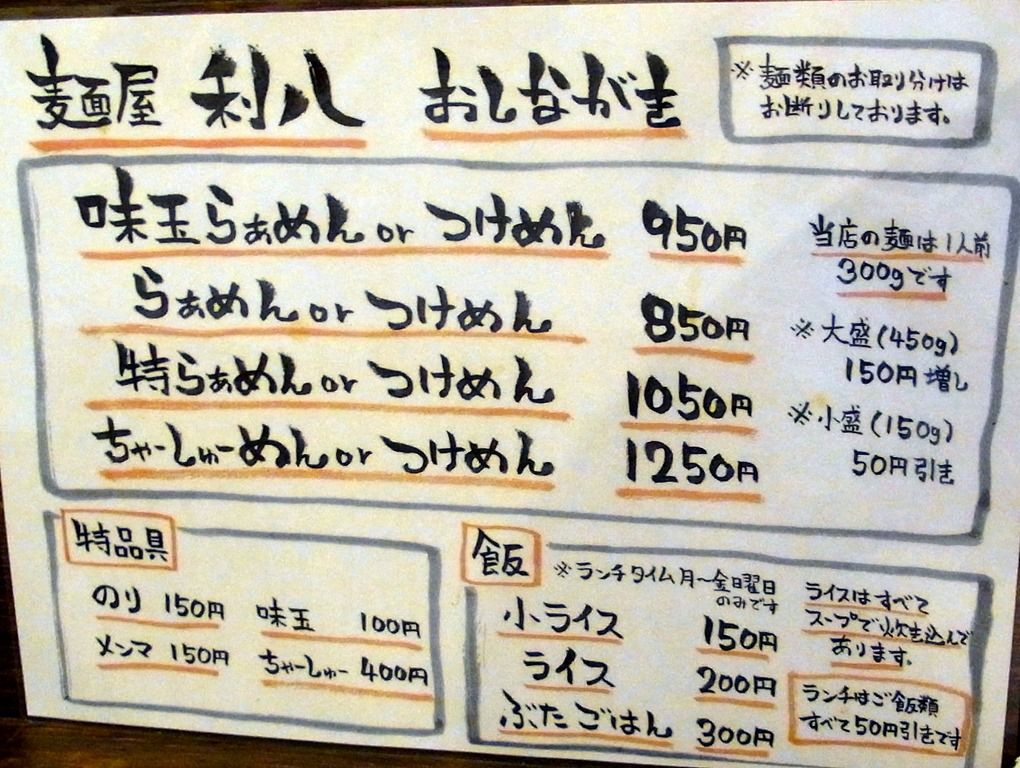 麺屋 利八 おしながき
※麺類のお取り分けは
お断りしております。
味玉らぁめん or つけめん 950円
らぁめん or つけめん 850円
特らぁめん or つけめん 1050円
ちゃーしゅーめん or つけめん 1250円
当店の麺は1人前
300gです
※大盛(450g)
150円増し
※小盛(150g)
50円引き
特品具
のり 150円 味玉 100円
メンマ 150円 ちゃーしゅー 400円
飯
※ランチタイム月〜金曜日
のみです
小ライス 150円
ライス 200円
ぶたごはん 300円
ライスはすべて
スープで炊き込んで
あります。
ランチはご飯類
すべて50円引きです